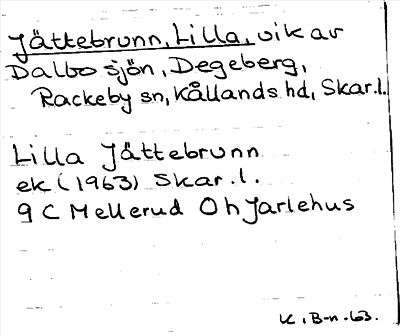 Jättebrunn, Lilla, vik av
Dalbosjön, Degeberg,
Rackeby sn, Kållands hd, Skar.l.
Lilla Jättebrunn
ek (1963) Skar.l.
9 C Mellerud Oh Jarlehus
K. B-n. 63.